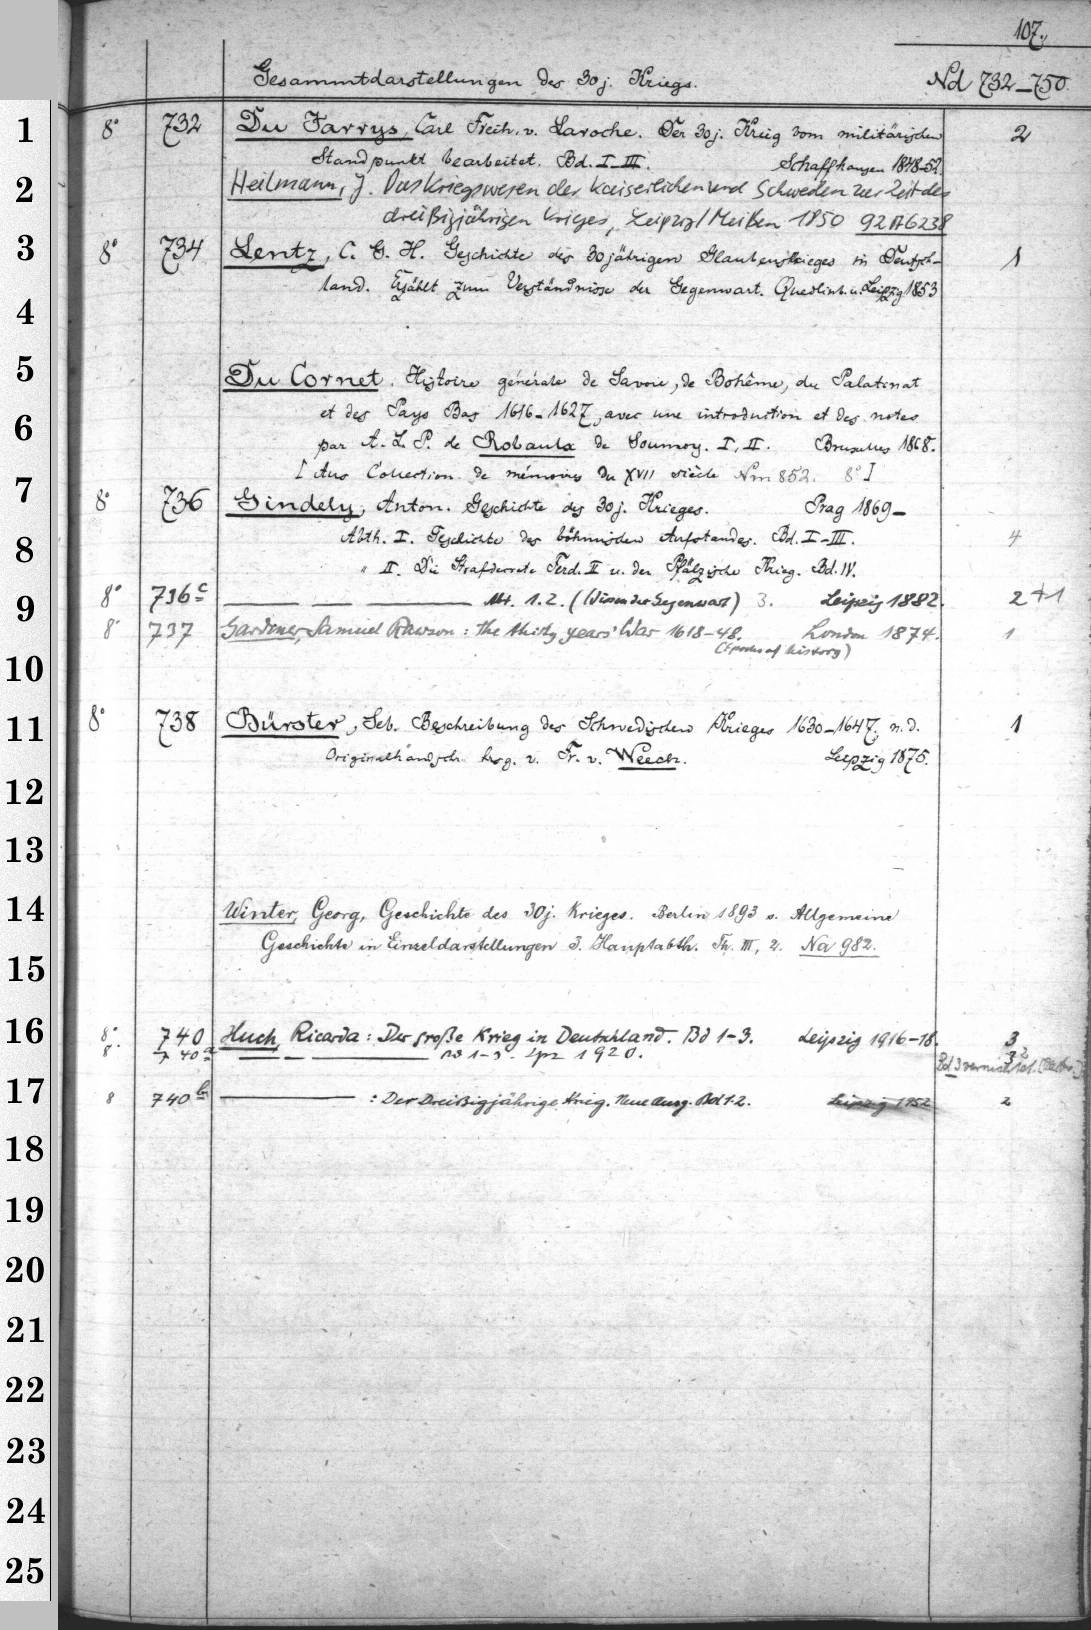 107.
Gesammtdarstellungen des 30j. Kriegs. Nd 732–750.
1 8° 732 Du Jarrys, Carl Freih. v. Laroche. Der 30j. Krieg vom militärischen 2
Standpunkt bearbeitet. Bd. I–III. Schaffhausen 1848–52.
2 Heilmann, J. Das Kriegswesen der Kaiserlichen und Schweden zur Zeit des
dreißigjährigen Krieges, Leipzig/Meißen 1850 92 A 6238
3 8° 734 Lentz, C. G. H. Geschichte des 30jährigen Glaubenskrieges in Deutsch- 1
land. Erzählt zum Verständnisse der Gegenwart. Quedlinb. u. Leipzig 1853
4
5 Du Cornet. Histoire générale de Savoie, de Bohême, du Palatinat
6 et des Pays Bas 1616–1627, avec une introduction et des notes
par A. L. P. de Robaulx de Soumoy. I, II. Bruxelles 1868.
[Aus Collection de mémoires du XVII siècle Nm 852. 8°]
7 8° 736 Gindely, Anton. Geschichte des 30j. Krieges. Prag 1869–
8 Abth. I. Geschichte des böhmischen Aufstandes. Bd. I–III. 4
" II. Die Strafdecrete Ferd. II u. der Pfälzische Krieg. Bd. IV.
9 8° 736c ——— —— ——— Abt. 1. 2. (Wissen der Gegenwart) 3. Leipzig 1882. 2+1
8° 737 Gardiner, Samuel Rawson: The thirty years' War 1618–48. London 1874. 1
(Epochs of history)
10
11 8° 738 Bürster, Seb. Beschreibung des Schwedischen Krieges 1630–1647, n. d. 1
Originalhandschr. hrsg. v. Fr. v. Weech. Leipzig 1875.
12
13
14 Winter, Georg, Geschichte des 30j. Krieges. Berlin 1893 s. Allgemeine
Geschichte in Einzeldarstellungen 3. Hauptabth. Th. III, 2. Na 982.
15
16 8°. 740 Huch, Ricarda: Der große Krieg in Deutschland. Bd 1–3. Leipzig 1916–18. 3
8°. 740a ——— — ——— Bd 1–3. Lpz 1920. 3
Bd 3 vermisst
17 8 740b ——— : Der Dreißigjährige Krieg. Neue Ausg. Bd 1-2. Leipzig 1952 2
18
19
20
21
22
23
24
25